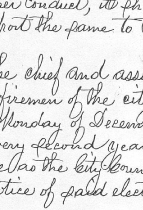 conduct, its pr
port the same to
e chief and ass
firemen of the cit
Monday of Decem
very second year
as the City Coun
tice of said elect